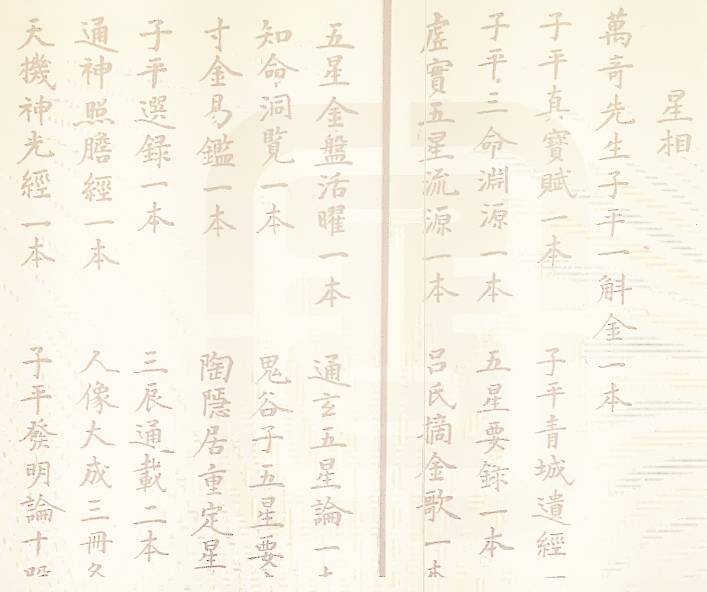 星相
萬奇先生子平一斛金一本
子平真寶賦一本 子平青城遺經一
子平三命淵源一本 五星要錄一本
虛實五星流源一本 呂氏摘金歌一本
五星金盤活曜一本 通玄五星論一
知命洞覽一本 鬼谷子五星要
寸金易鑑一本 陶隱居重定星
子平選錄一本 三辰通載二本
通神照膽經一本 人像大成三冊
天機神光經一本 子平發明論十